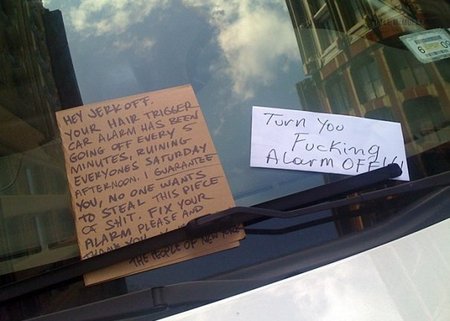 HEY JERKOFF,
YOUR HAIR TRIGGER
CAR ALARM HAS BEEN
GOING OFF EVERY 5
MINUTES, RUINING
EVERYONES SATURDAY
AFTERNOON. I GUARANTEE
YOU, NO ONE WANTS
TO STEAL THIS PIECE
OF SHIT. FIX YOUR
ALARM PLEASE AND
THANK YOU.
THE PEOPLE OF NEW YORK
Turn You
Fucking
Alarm OFF!!
6 09